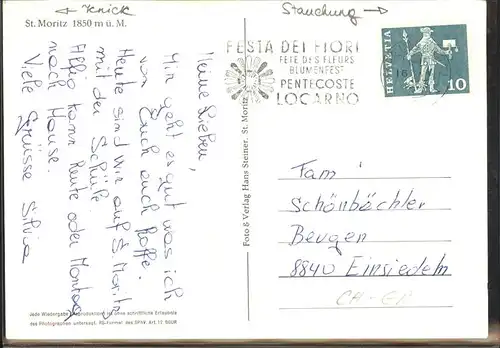 ← Knick
Stauchung →
St. Moritz 1850 m ü. M.
FESTA DEI FIORI
FETE DES FLEURS
BLUMENFEST
PENTECOSTE
LOCARNO
HELVETIA
10
Meine Lieben,
Mir geht es gut was ich
von Euch auch hoffe.
Heute sind wir auf S. Moritz
mit der Schule.
Affio kann heute oder Montag
nach Hause.
Viele Grüsse Silvia
Foto & Verlag Hans Steiner, St. Moritz
Fam.
Schönbächler
Beugen
8840 Einsiedeln
CH-
Jede Wiedergabe (Reproduktion) ist ohne schriftliche Erlaubnis
des Photographen untersagt.